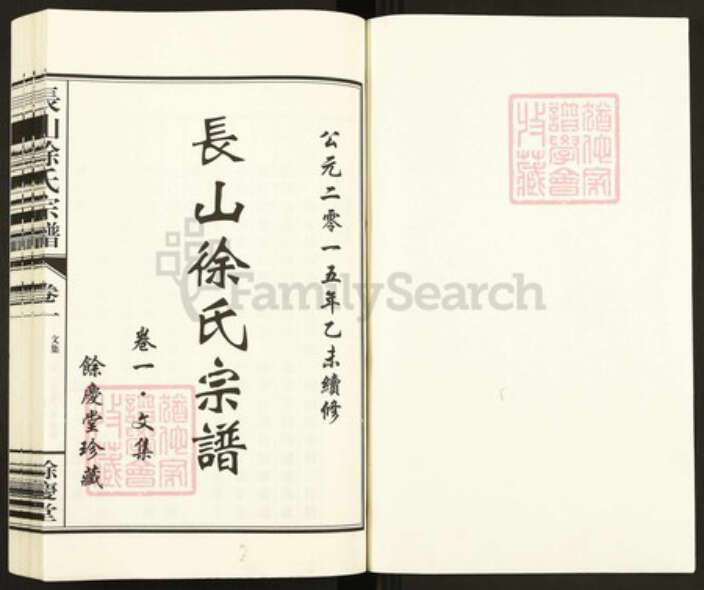 公元二零一五年乙未續修
長山徐氏宗譜
卷一·文集
餘慶堂珍藏
長山徐氏宗譜
卷一
文集
餘慶堂
譜學會
收藏
FamilySearch